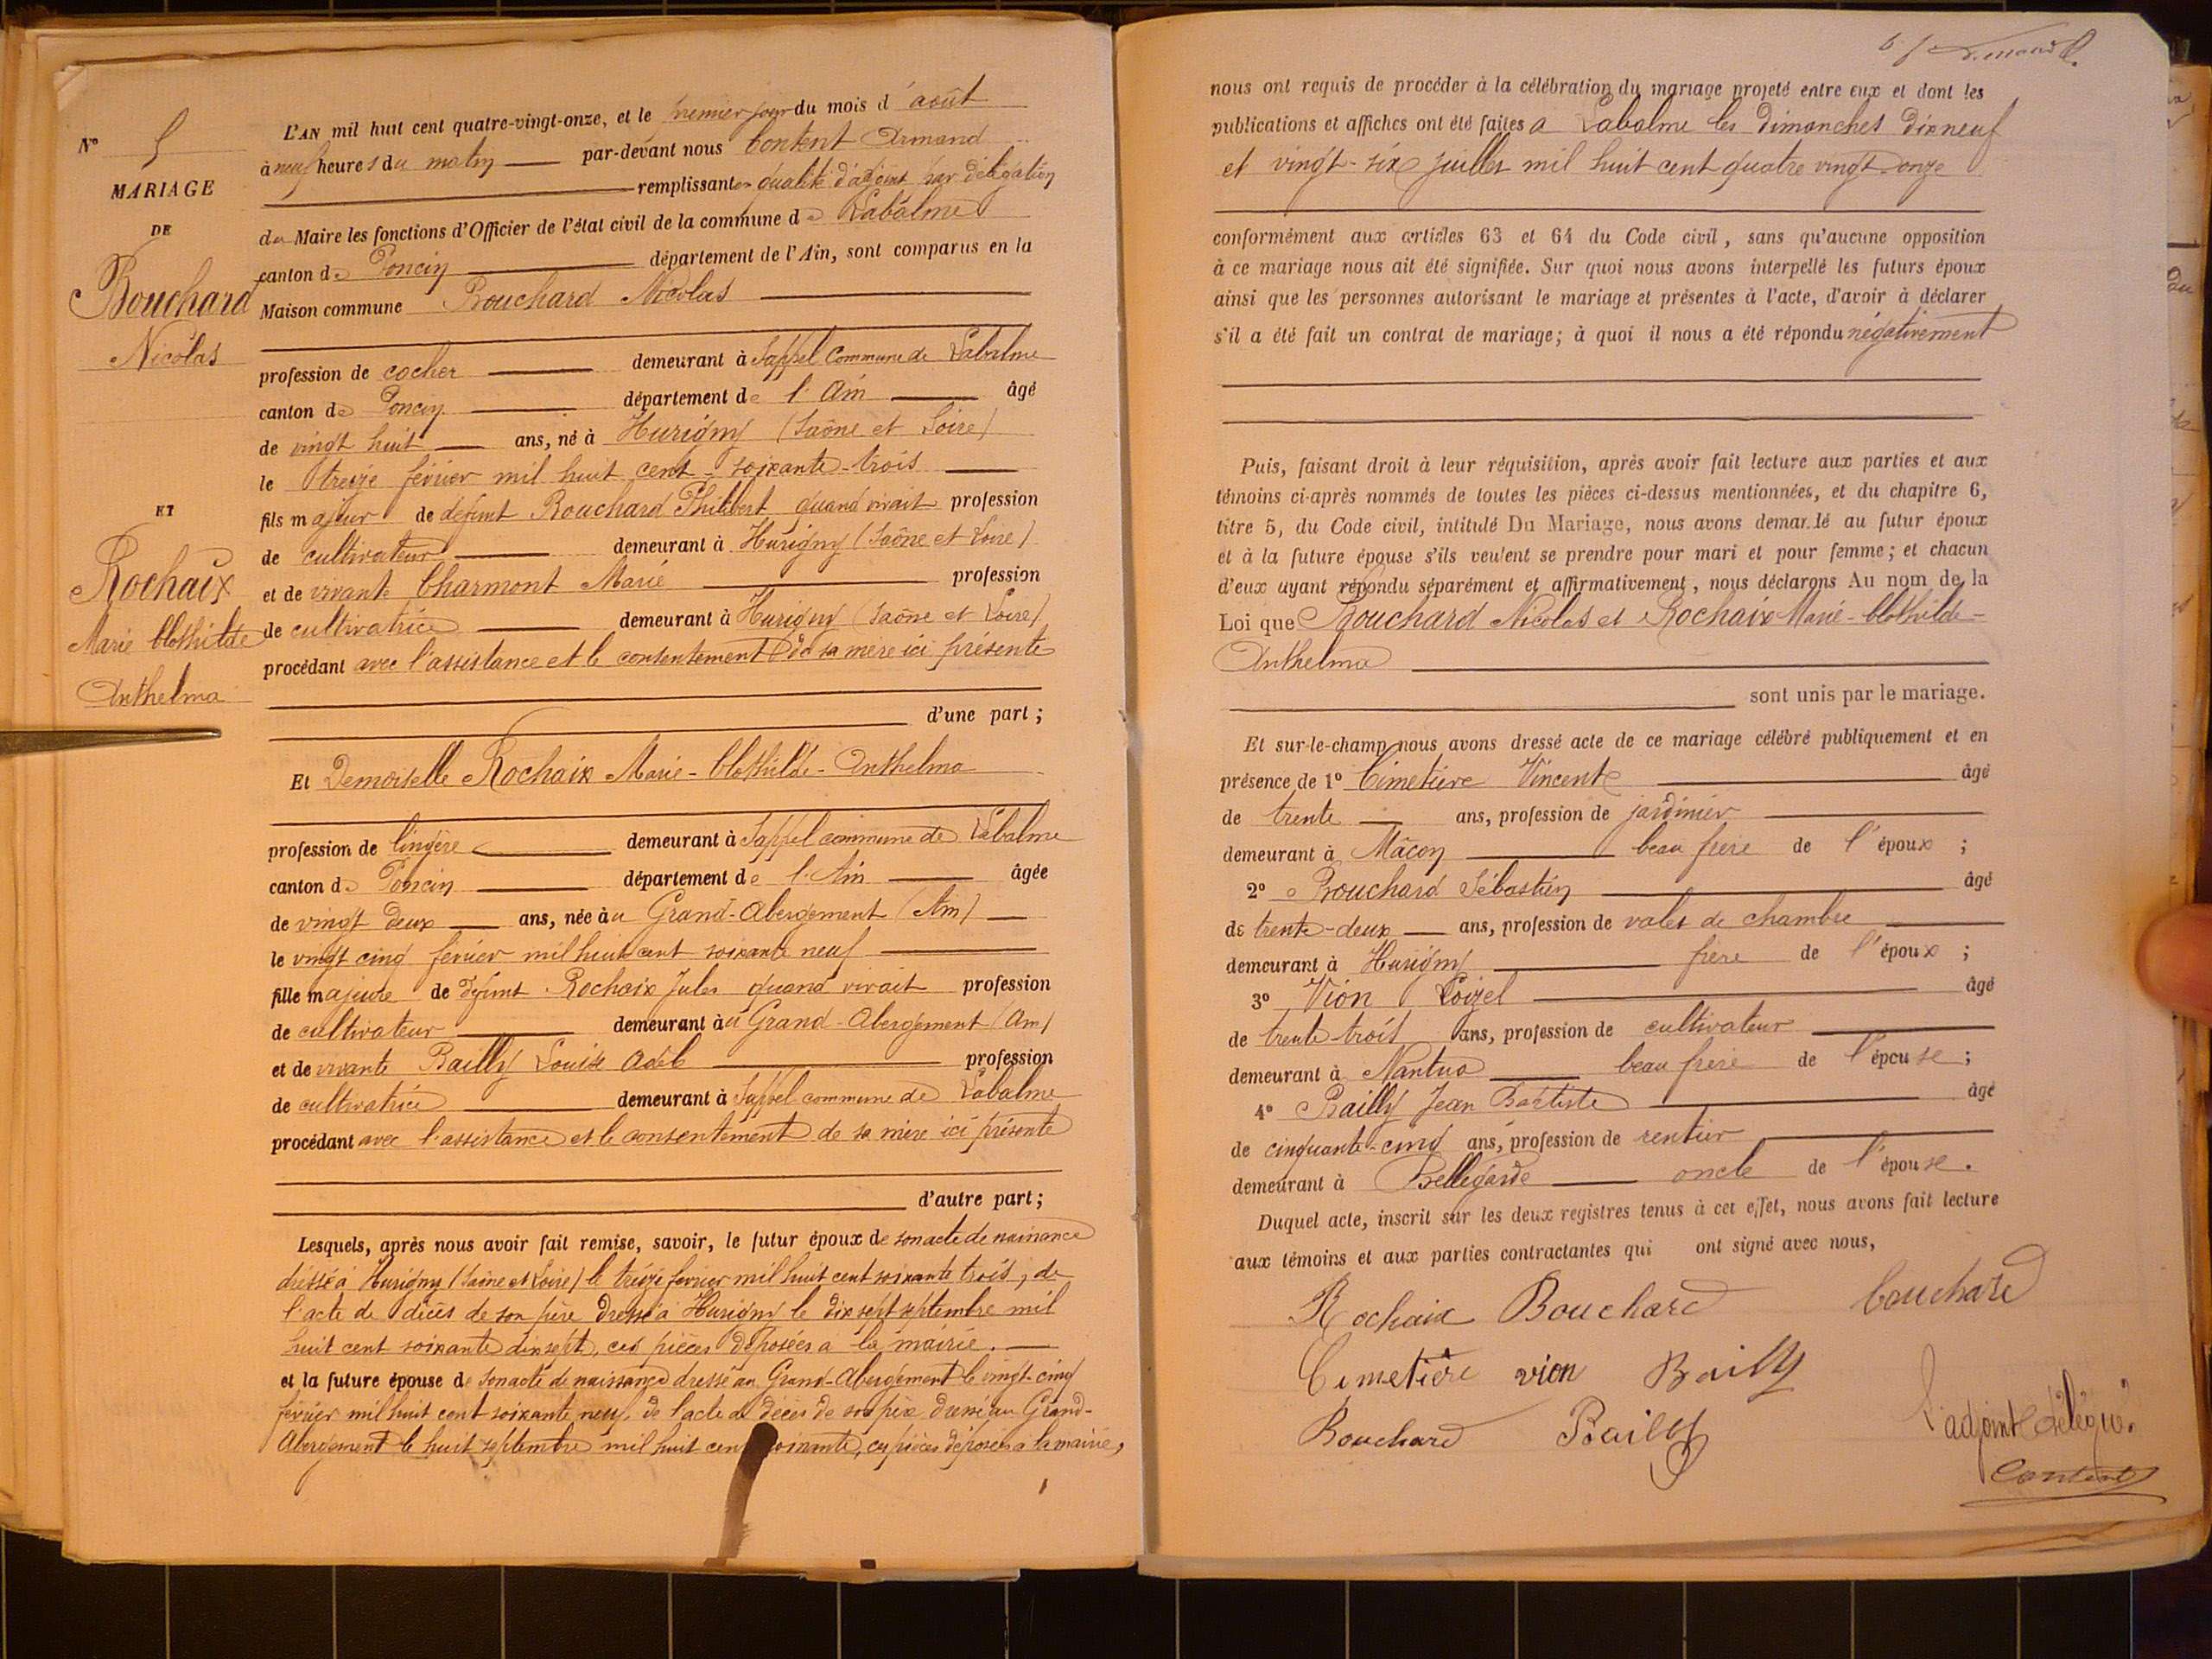 N° 5
MARIAGE
DE
Bouchard
Nicolas
ET
Rochaix
Marie Clothilde
Anthelma
L'AN mil huit cent quatre-vingt-onze, et le premier jour du mois d'août
à neuf heures du matin par-devant nous Content Armand
remplissant en qualité d'adjoint par délégation
du Maire les fonctions d'Officier de l'état civil de la commune de Labalme
canton de Poncin département de l'Ain, sont comparus en la
Maison commune Bouchard Nicolas
profession de cocher demeurant à Sappel commune de Labalme
canton de Poncin département de l'Ain âgé
de vingt huit ans, né à Hurigny (Saône et Loire)
le treize février mil huit cent soixante-trois
fils majeur de défunt Bouchard Philibert quand vivait profession
de cultivateur demeurant à Hurigny (Saône et Loire)
et de vivante Charmont Marie profession
de cultivatrice demeurant à Hurigny (Saône et Loire)
procédant avec l'assistance et le consentement de sa mère ici présente
d'une part ;
Et Demoiselle Rochaix Marie-Clothilde-Anthelma
profession de lingère demeurant à Sappel commune de Labalme
canton de Poncin département de l'Ain âgée
de vingt deux ans, née àu Grand-Abergement (Ain)
le vingt cinq février mil huit cent soixante neuf
fille majeure de défunt Rochaix Jules quand vivait profession
de cultivateur demeurant àu Grand-Abergement (Ain)
et de vivante Bailly Louise Adèle profession
de cultivatrice demeurant à Sappel commune de Labalme
procédant avec l'assistance et le consentement de sa mère ici présente
d'autre part ;
Lesquels, après nous avoir fait remise, savoir, le futur époux de son acte de naissance
dressé à Hurigny (Saône et Loire) le treize février mil huit cent soixante trois, de
l'acte de décès de son père dressé à Hurigny le dix sept septembre mil
huit cent soixante dix sept, ces pièces déposées a la mairie.
et la future épouse de son acte de naissance dressé au Grand-Abergement le vingt-cinq
février mil huit cent soixante neuf, de l'acte de décès de son père dressé au Grand-
Abergement le huit septembre mil huit cent soixante, ces pièces déposées a la mairie,
nous ont requis de procéder à la célébration du mariage projeté entre eux et dont les
publications et affiches ont été faites a Labalme les dimanches dix neuf
et vingt-six juillet mil huit cent quatre vingt onze
conformément aux articles 63 et 64 du Code civil, sans qu'aucune opposition
à ce mariage nous ait été signifiée. Sur quoi nous avons interpellé les futurs époux
ainsi que les personnes autorisant le mariage et présentes à l'acte, d'avoir à déclarer
s'il a été fait un contrat de mariage; à quoi il nous a été répondu négativement
Puis, faisant droit à leur réquisition, après avoir fait lecture aux parties et aux
témoins ci-après nommés de toutes les pièces ci-dessus mentionnées, et du chapitre 6,
titre 5, du Code civil, intitulé Du Mariage, nous avons demandé au futur époux
et à la future épouse s'ils veulent se prendre pour mari et pour femme; et chacun
d'eux ayant répondu séparément et affirmativement, nous déclarons Au nom de la
Loi que Bouchard Nicolas et Rochaix Marie-Clothilde-
Anthelma
sont unis par le mariage.
Et sur-le-champ nous avons dressé acte de ce mariage célébré publiquement et en
présence de 1° Cimetière Vincent âgé
de trente ans, profession de jardinier
demeurant à Mâcon beau frère de l'époux ;
2° Bouchard Sébastien âgé
de trente-deux ans, profession de valet de chambre
demeurant à Hurigny frère de l'époux ;
3° Vion Loizel âgé
de trente trois ans, profession de cultivateur
demeurant à Nantua beau frère de l'épouse ;
4° Bailly Jean Baptiste âgé
de cinquante-cinq ans, profession de rentier
demeurant à Bellegarde oncle de l'épouse.
Duquel acte, inscrit sur les deux registres tenus à cet effet, nous avons fait lecture
aux témoins et aux parties contractantes qui ont signé avec nous,
Rochaix Bouchard Bouchard
Cimetière vion Bailly
Bouchard Bailly
L'adjoint délégué.
Content